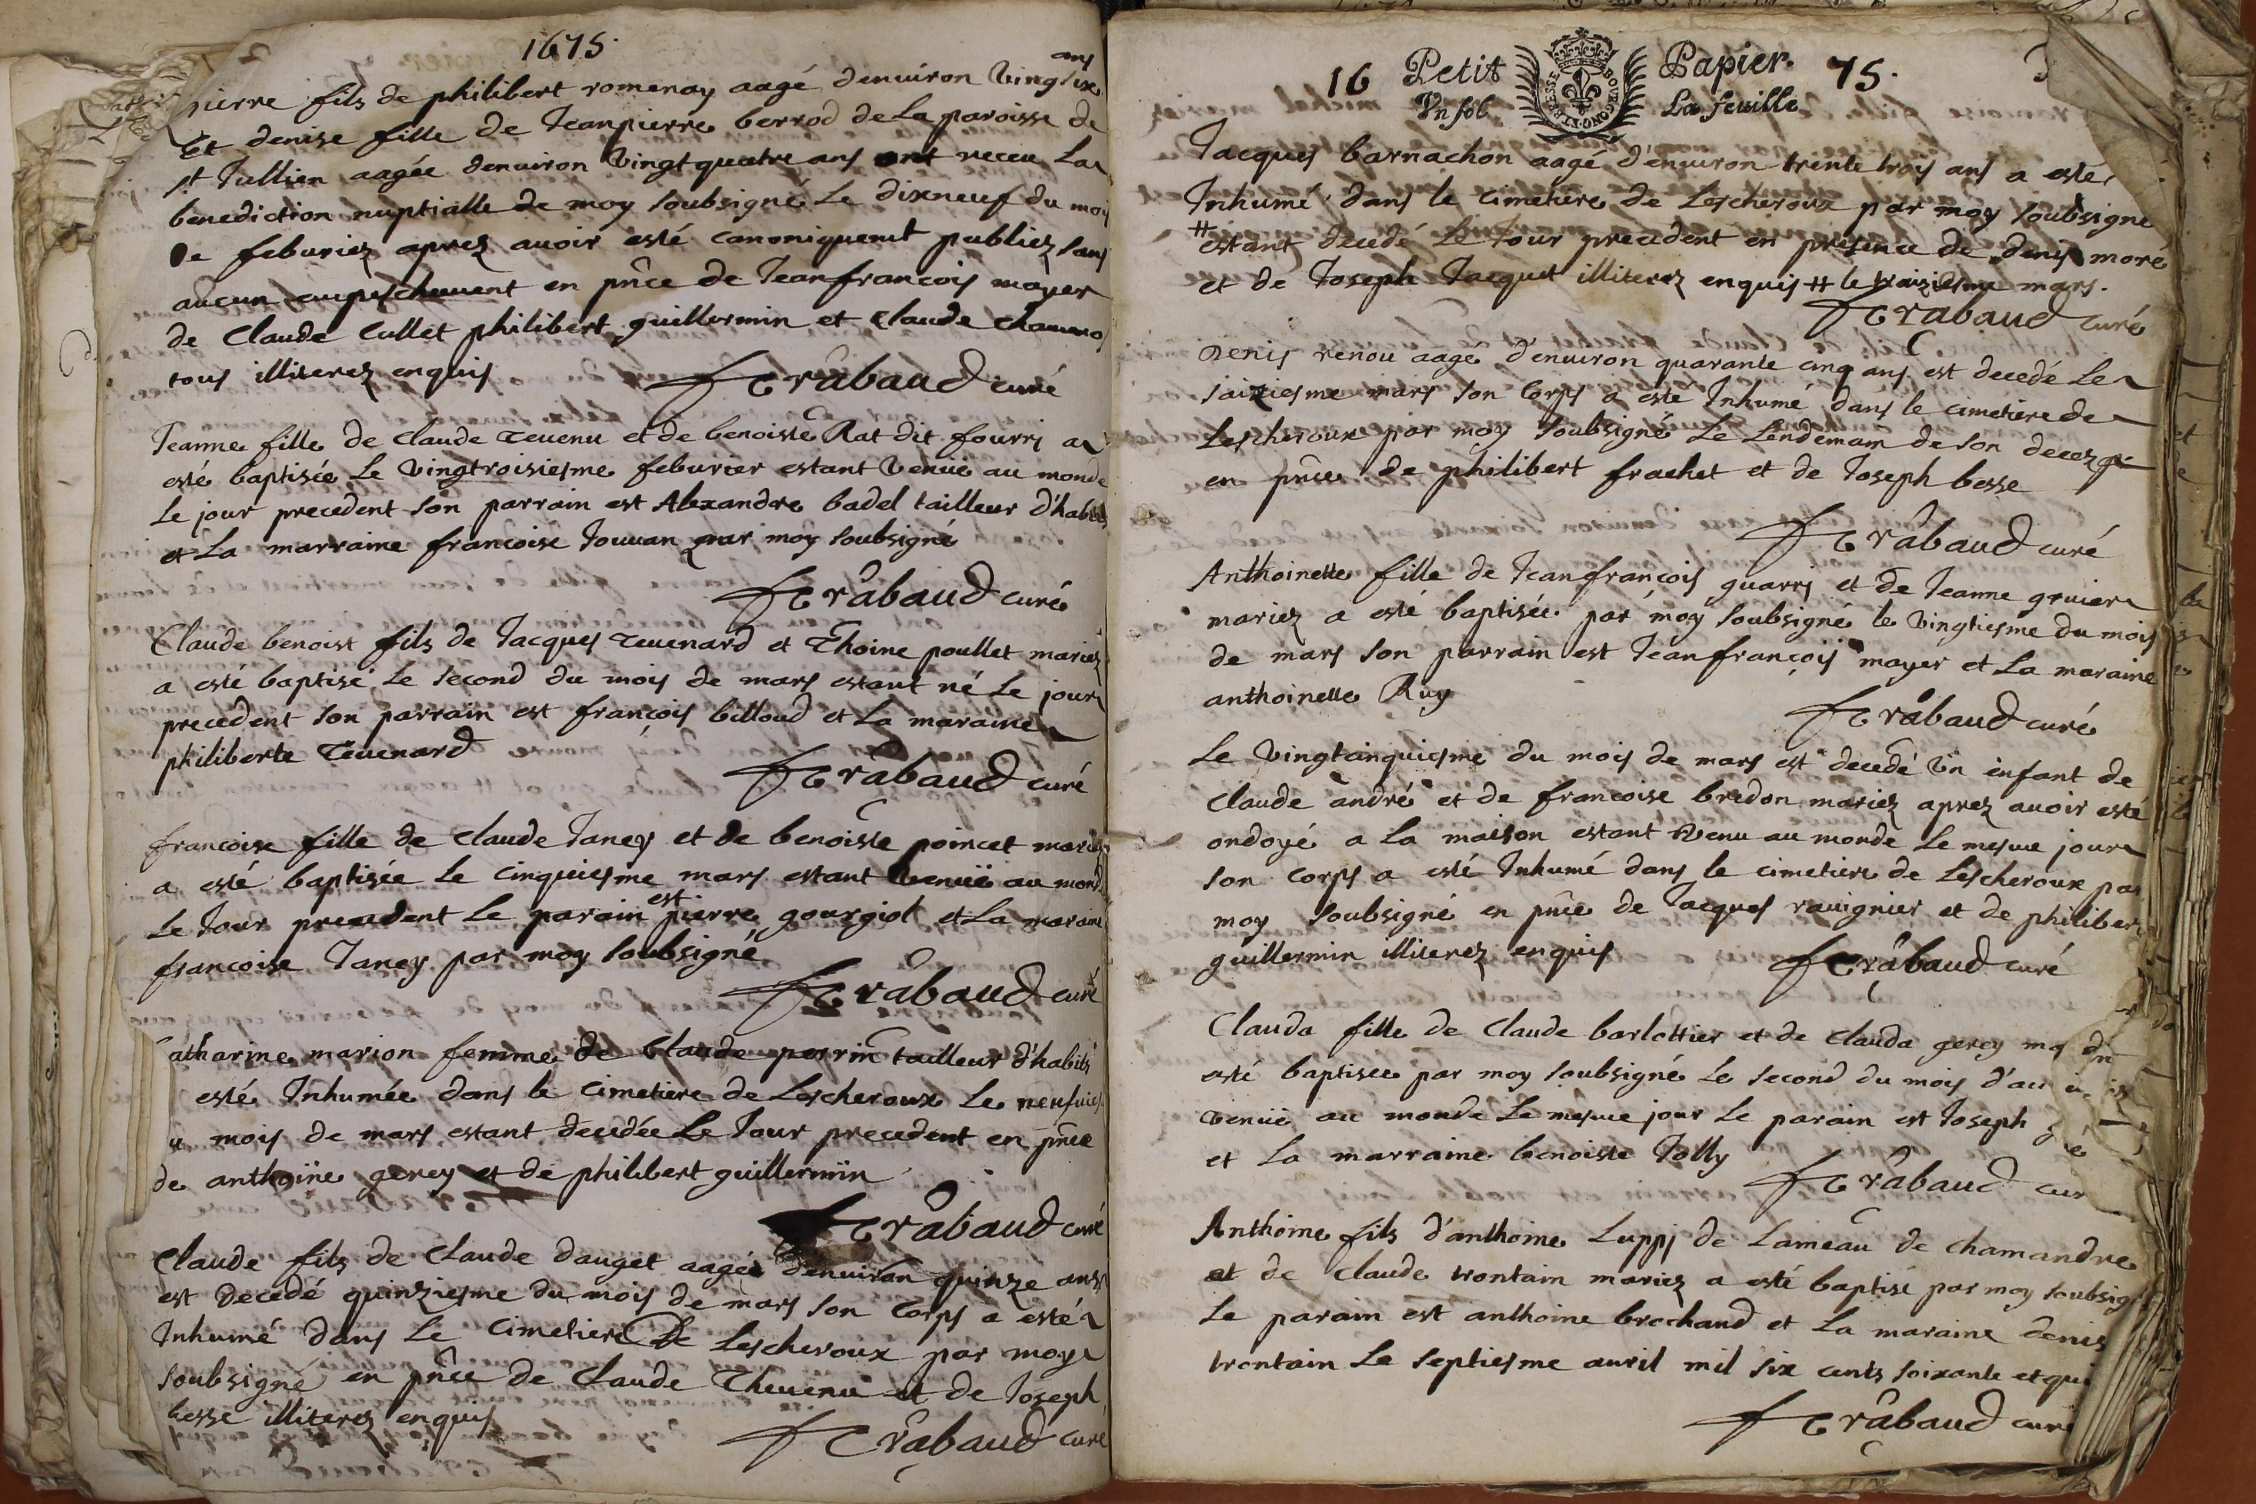 1675.
ans
pierre fils de philibert romenay aagé denuiron Vingt six
Et denise fille de Jeanpierre berrod de La paroisse de
st Jullien aagée denuiron Vingt quatre ans ont receu La
benediction nuptialle de moy soubsigné Le dixneuf du mois
De feburiez aprez auoir esté canoniquemt publiez sans
aucun empeschement en pñce de Jeanfrancois mayer
de Claude Cullet philibert guillermin et Claude
tous illiterez enquis
Trabaud curé
Jeanne fille de Claude Teuenu et de benoiste Rat dit fourrj a
esté baptisée Le Vingtroisiesme feburier estant Venue au monde
Le jour precedent son parrain est Alexandre badel tailleur d'habits
et La marraine francoise Jouuan par moy soubsigné
Trabaud curé
Claude benoist fils de Jacques Teuenard et Thoine poullet mariez
a esté baptisé Le second du mois de mars estant né Le jour
precedent son parrain est françois billoud et La maraine
philiberte Teuenard
Trabaud curé
francoise fille de Claude Janey et de benoiste poincet mariez
a esté baptisée Le cinquiesme mars estant Venuë au monde
Le Jour precedent Le parain est pierre gourgiot et La maraine
francoise Janey par moy soubsigné
Trabaud curé
Catharine marion femme de Claude perrin tailleur d'habits
esté Inhumée dans le cimetiere de Lescheroux Le neufuies
u mois de mars estant decedée Le Jour precedent en pñce
de anthoine gerey et de philibert guillermin
Trabaud curé
Claude fils de Claude dauget aagée denuiron quinze ans
est decedé quinziesme du mois de mars son Corps a esté
Inhumé dans Le Cimetiere De Lescheroux par moy
soubsigné en pñce de Claude Theuenu et de Joseph
besse illiterez enquis
Trabaud curé
16 Petit Papier. 75.
Vn sol La feuille
BOURGONG ET BRESSE
Jacques barnachon aagé d'enuiron trente trois ans a esté
Inhumé dans le cimetiere de Lescheroux par moy soubsigné
# estant decedé Le Jour precedent en presence de denis moré
et de Joseph Jacquet illiterez enquis # le traiziesme mars.
Trabaud curé
Denis renou aagé d'enuiron quarante cinq ans est decedé Le
saiziesme mars son Corps a esté Inhumé dans le cimetiere de
Lescheroux par moy soubsigné Le Lendemain de son decez
en pñce de philibert frachet et de Joseph besse
Trabaud curé
Anthoinette fille de Jeanfrançois guarrj et de Jeanne gruier
mariez a esté baptisée par moy soubsigné le vingtiesme du mois
de mars son parrain est Jeanfrançois mayer et La maraine
anthoinette Ruy
Trabaud curé
Le Vingtcinquiesme du mois de mars est decedé Vn enfant de
Claude andré et de francoise bredon mariez aprez auoir esté
ondoyé a La maison estant Venu au monde Le mesme jour
son Corps a esté Inhumé dans le cimetiere de Lescheroux par
moy soubsigné en pñce de Jacques rauignier et de philiber
guillermin illiterez enquis
Trabaud curé
Clauda fille de Claude barlottier et de Clauda gerey ma
esté baptisée par moy soubsigné Le second du mois d'au
venuë au monde Le mesme jour Le parain est Joseph
et La marraine benoiste Jolly
Trabaud cur
Anthoine fils d'anthoine Luppj de Lameau de chamandre
et de Claude trontain mariez a esté baptisé par moy soubsig
Le parain est anthoine brochand et La maraine denis
trontain Le septiesme auril mil six cents soixante et qui
Trabaud curé